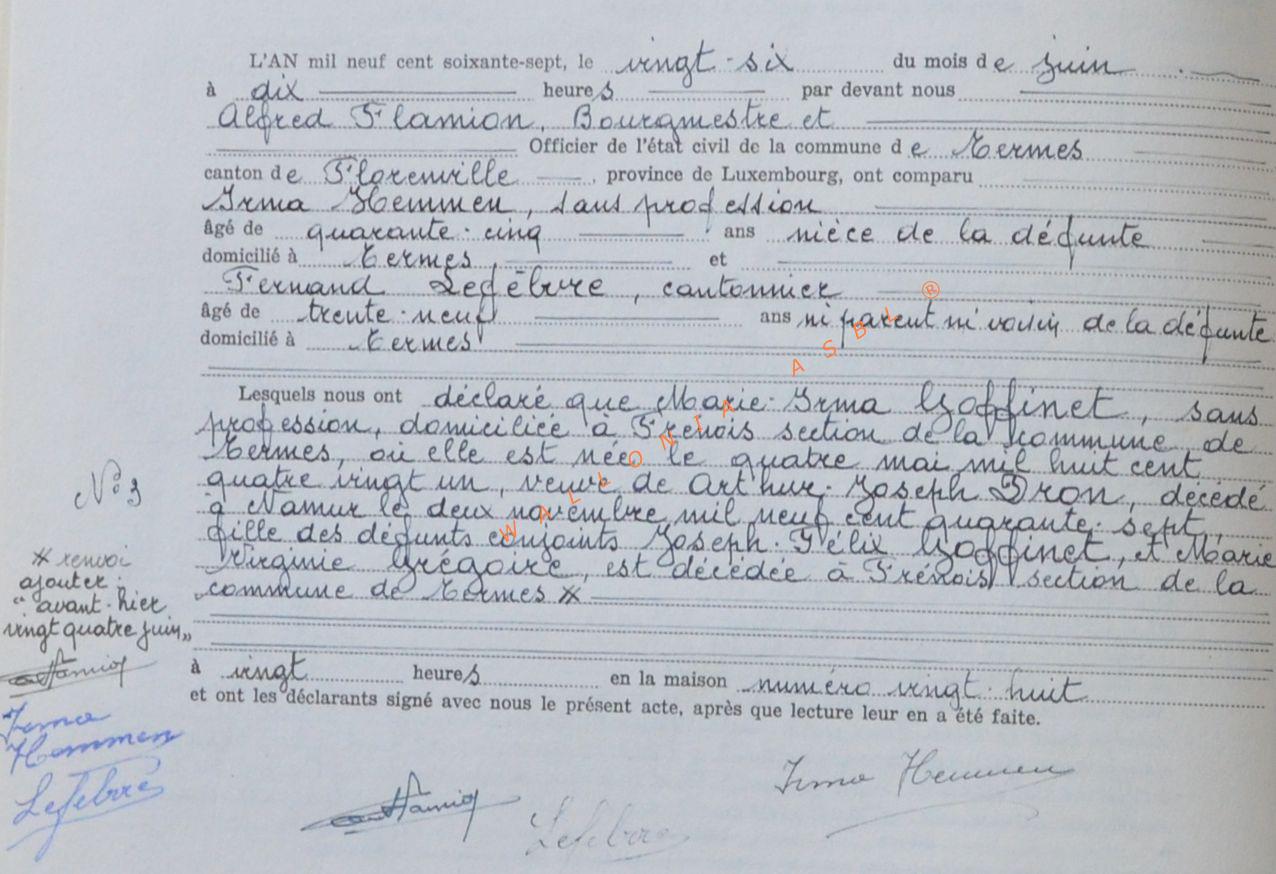 L'AN mil neuf cent soixante-sept, le vingt-six du mois de juin
à dix heures par devant nous
Alfred Flamion, Bourgmestre et
Officier de l'état civil de la commune de Termes
canton de Florenville, province de Luxembourg, ont comparu
Irma Hemmen, sans profession
âgé de quarante-cinq ans nièce de la défunte
domicilié à Termes, et
Fernand Lefèbvre, cantonnier
âgé de trente-neuf ans ni parent ni voisin de la défunte
domicilié à Termes
Lesquels nous ont déclaré que Marie-Irma Goffinet, sans
profession, domiciliée à Frenois section de la commune de
Termes, où elle est née le quatre mai mil huit cent
quatre vingt un, veuve de Arthur-Joseph Dron, décédé
à Namur le deux novembre mil neuf cent quarante-sept,
fille des défunts conjoints Joseph-Félix Goffinet, et Marie
Virginie Grégoire, est décédée à Frénois section de la
commune de Termes *
à vingt heures en la maison numéro vingt-huit
et ont les déclarants signé avec nous le présent acte, après que lecture leur en a été faite.
N° 3
* renvoi
ajouter:
"avant-hier
vingt quatre juin"
Irma
Hemmen
Lefebvre
Lefebvre
Irma Hemmen
WALLONIA ASBL ®